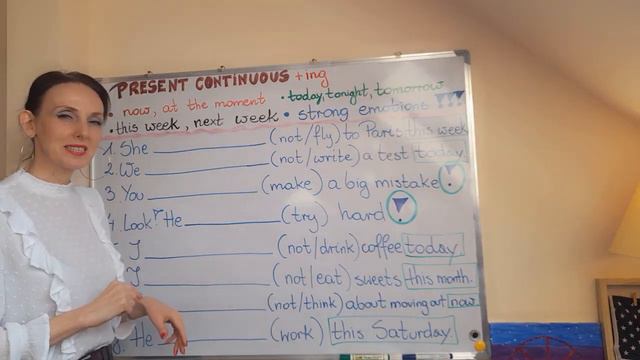 PRESENT CONTINUOUS +ing
• now, at the moment • today, tonight, tomorrow
• this week, next week • strong emotions !!!
1. She __________ (not/fly) to Paris this week
2. We __________ (not/write) a test today.
3 You __________ (make) a big mistake !
4. Look! He __________ (try) hard !
I __________ (not/drink) coffee today.
I __________ (not/eat) sweets this month.
__________ (not/think) about moving out now
8. He __________ (work) this Saturday.